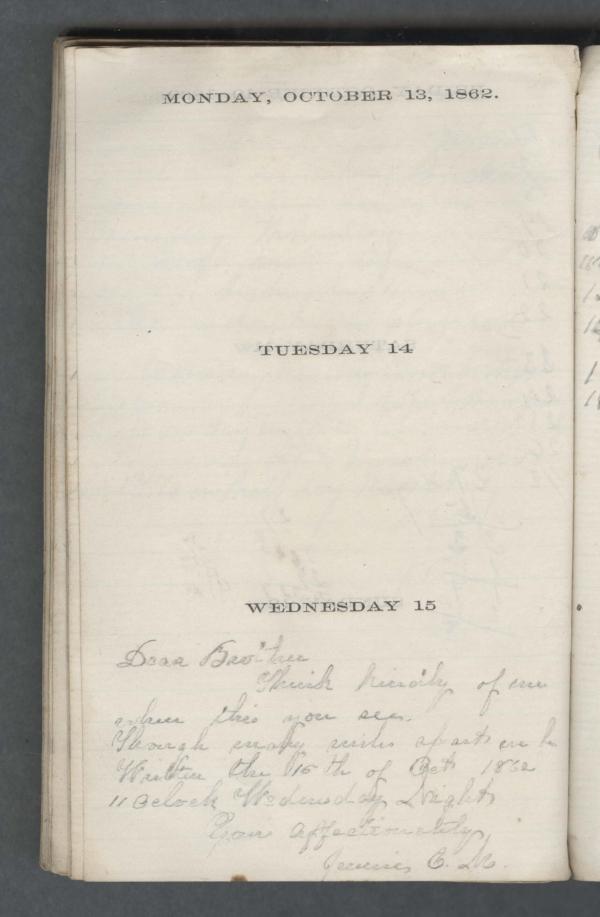 MONDAY, OCTOBER 13, 1862.
TUESDAY 14
WEDNESDAY 15
Dear Brother
Think kindly of me
when this you see.
Though many miles apart we be
Written the 15 th of Oct 1862
11 Oclock Wednesday Night
Your affectionately
Jennie C.